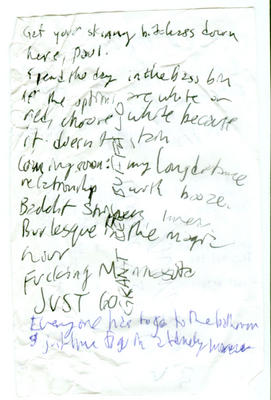 Get your skinny bitchass down
here, Paul.
Spend the day in the bass bin
If the options are white or
red, choose white because
it doesn't stain
Coming soon: my long distance
relationship with booze.
Bedolt Strippers
Burlesque the magic
hour
Fucking Minnesota
JUST GO.
GRANT BUFFALO
Everyone has to go to the bathroom